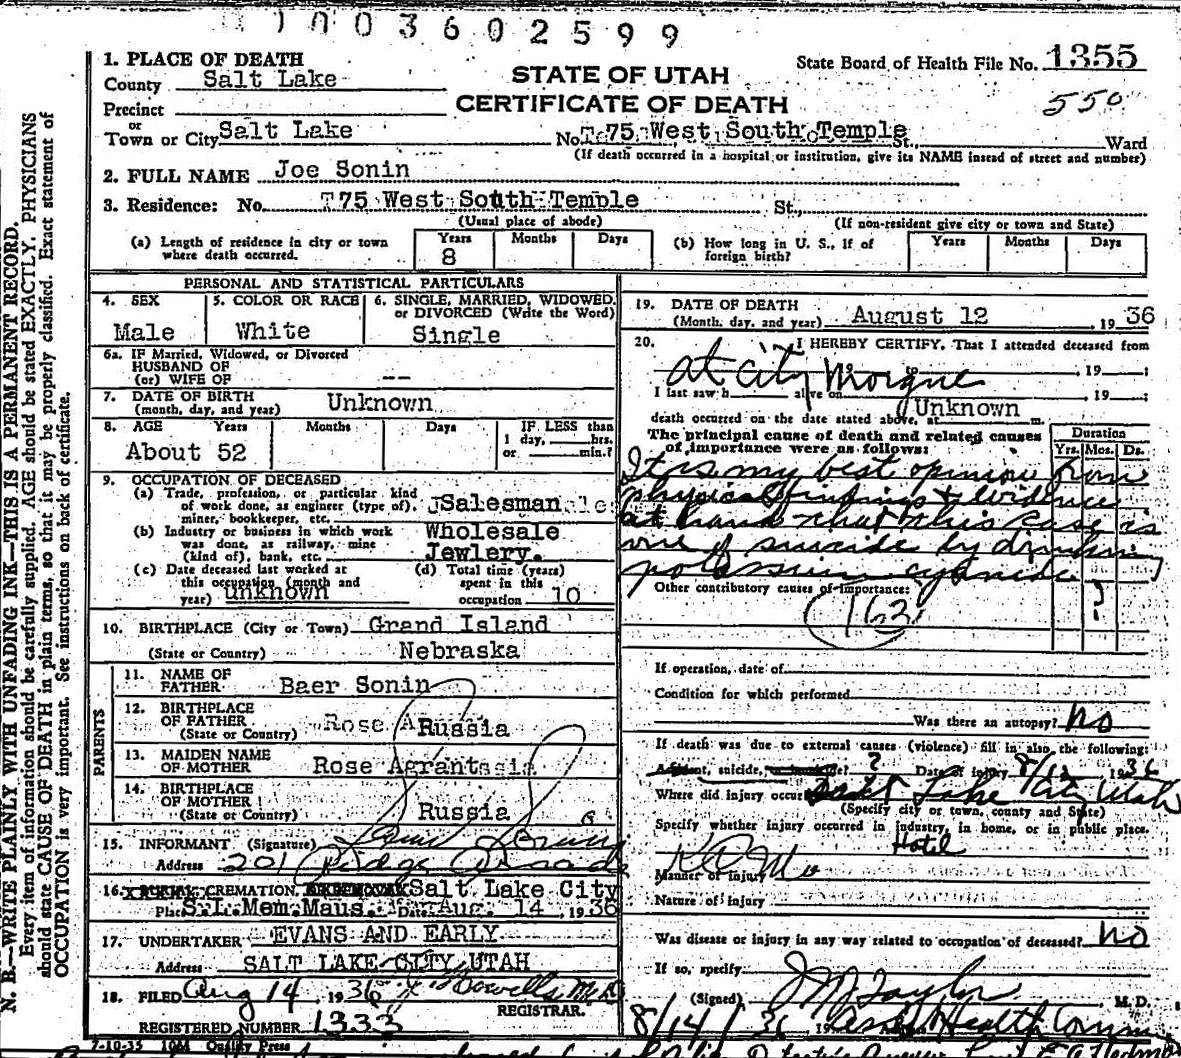 003602599
1. PLACE OF DEATH
County Salt Lake
Precinct
or
Town or City Salt Lake
STATE OF UTAH
CERTIFICATE OF DEATH
State Board of Health File No. 1355
550
No. 75 West South Temple St., Ward
(If death occurred in a hospital or institution, give its NAME instead of street and number)
2. FULL NAME Joe Sonin
3. Residence: No. 75 West South Temple St.,
(Usual place of abode) (If non-resident give city or town and State)
(a) Length of residence in city or town where death occurred. Years 8 Months Days
(b) How long in U. S., if of foreign birth? Years Months Days
PERSONAL AND STATISTICAL PARTICULARS
4. SEX Male
5. COLOR OR RACE White
6. SINGLE, MARRIED, WIDOWED, or DIVORCED (Write the Word) Single
6a. IF Married, Widowed, or Divorced
HUSBAND OF
(or) WIFE OF --
7. DATE OF BIRTH (month, day, and year) Unknown
8. AGE Years Months Days IF LESS than
About 52 1 day, hrs.
or min.?
9. OCCUPATION OF DECEASED
(a) Trade, profession, or particular kind of work done, as engineer (type of), miner, bookkeeper, etc. Salesman
(b) Industry or business in which work was done, as railway, mine (kind of), bank, etc. Wholesale Jewlery.
(c) Date deceased last worked at this occupation (month and year) unknown
(d) Total time (years) spent in this occupation 10
10. BIRTHPLACE (City or Town) Grand Island
(State or Country) Nebraska
PARENTS
11. NAME OF FATHER Baer Sonin
12. BIRTHPLACE OF FATHER (State or Country) Russia
13. MAIDEN NAME OF MOTHER Rose Agrantasia
14. BIRTHPLACE OF MOTHER (State or Country) Russia
15. INFORMANT (Signature)
Address 201
16. CREMATION, Salt Lake City
Place S.L. Mem. Maus. Date Aug. 14, 1936
17. UNDERTAKER EVANS AND EARLY
Address SALT LAKE CITY, UTAH
18. FILED Aug 14, 1936 M.D.
REGISTRAR.
REGISTERED NUMBER 1333
7-10-35 10M Quality Press
19. DATE OF DEATH
(Month, day, and year) August 12, 1936
20. I HEREBY CERTIFY, That I attended deceased from
at city Morgue, 19
I last saw h alive on , 19 ;
death occurred on the date stated above, at Unknown m.
The principal cause of death and related causes of importance were as follows:
Duration
Yrs. Mos. Ds.
It is my best opinion from
physical findings & evidence
at hand that this case is
one of suicide by drinking
potassium cyanide
?
Other contributory causes of importance:
163
If operation, date of
Condition for which performed
Was there an autopsy? No
If death was due to external causes (violence) fill in also the following:
Accident, suicide, ? Date of injury 8/12 1936
Where did injury occur Salt Lake City Utah
(Specify city or town, county and State)
Specify whether injury occurred in industry, in home, or in public place.
Hotel
Manner of injury
Nature of injury
Was disease or injury in any way related to occupation of deceased? No
If so, specify
(Signed) J M Taylor M. D.
8/14/36 19 Health Comm
N. B.—WRITE PLAINLY WITH UNFADING INK—THIS IS A PERMANENT RECORD.
Every item of information should be carefully supplied. AGE should be stated EXACTLY. PHYSICIANS
should state CAUSE OF DEATH in plain terms, so that it may be properly classified. Exact statement of
OCCUPATION is very important. See instructions on back of certificate.